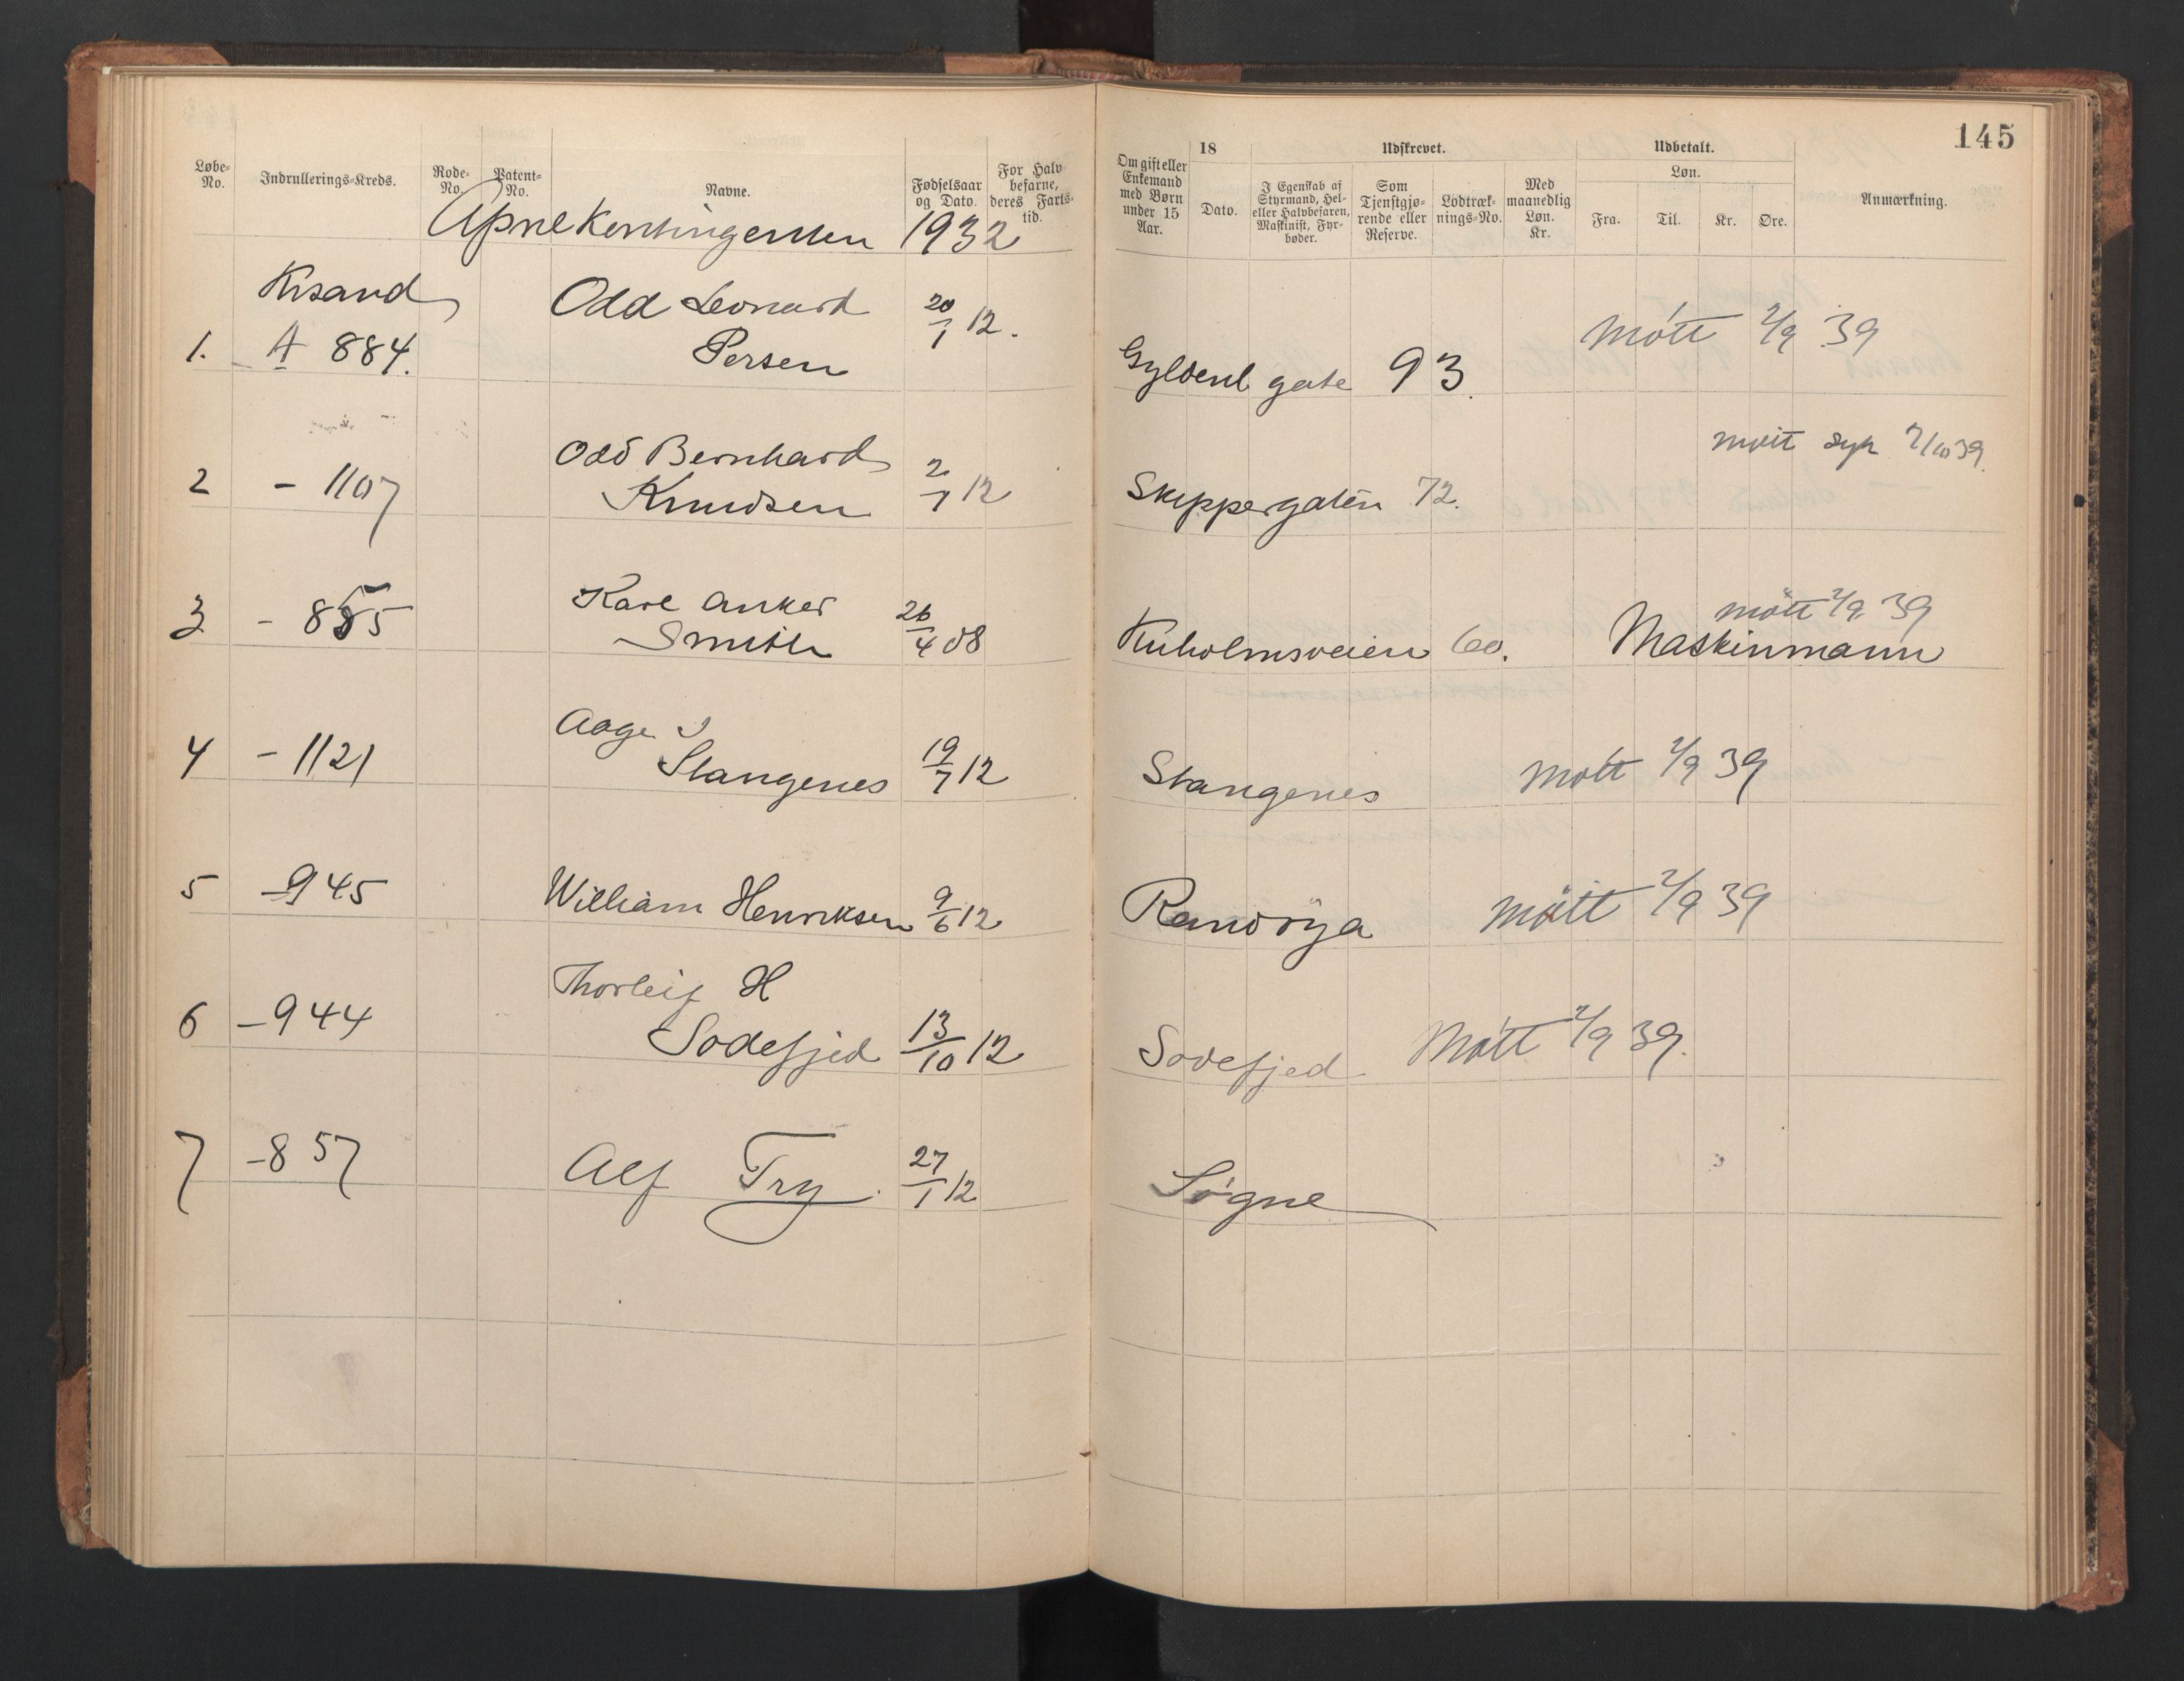 145
Løbe-No. Indrullerings-Kreds. Rode-No. Patent-No. Navne. Fødselsaar og Dato. For Halv-befarne, deres Farts-tid.
Om gift eller Enkemand med Børn under 15 Aar. 18 Dato. Udskrevet. I Egenskab af Styrmand, Hel- eller Halvbefaren, Maskinist, Fyr-bøder. Som Tjenstgjø-rende eller Reserve. Lodtræk-nings-No. Med maanedlig Løn. Kr. Udbetalt. Løn. Fra. Til. Kr. Øre. Anmærkning.
1932
Krsand Odd Leonard 20/1 12.
1. A 884. Persen Gyldenl gate 93. Møtt 2/9 39
Odd Bernhard
2 - 1107 Knudsen 2/1 12 Skippergaten 72. møtt syk 2/10 39.
Karl Anker møtt 2/9 39
3 - 885 Smith 26/4 08 Kuholmsveien 60. Maskinmann
Aage
4 - 1121 Stangenes 19/7 12 Stangenes Møtt 2/9 39
5 - 945 William Henriksen 9/6 12 Randøya Møtt 2/9 39
Thorleif H
6 - 944 Sodefjed 13/10 12 Sodefjed Møtt 2/9 39.
7 - 857 Alf Try. 27/1 12 Søgne